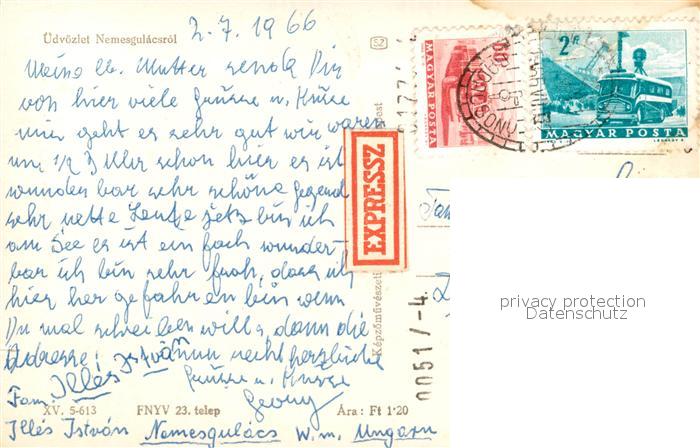 Üdvözlet Nemesgulácsról
2.7.1966
Meine lb. Mutter sende Dir
von hier viele Grüsse u. Küsse
mir geht es sehr gut wir waren
um 1/2 3 Uhr schon hier es ist
wunderbar sehr schöne Gegend
sehr nette Leute jetz bin ich
am See es ist ein fach wunder-
bar ich bin sehr froh, dass ich
hier her gefahren bin wenn
Du mal schreiben willst, dann die
Adresse: Illés István nun recht herzliche
Grüsse u. Küsse
Georg
Fam.
Illés István Nemesgulács W.m. Ungarn
XV. 5-613 FNYV 23. telep Ára: Ft 1·20
SZ
EXPRESSZ
0051/-4
60
MAGYAR POSTA
2 Ft
MAGYAR POSTA
Fam
privacy protection
Datenschutz